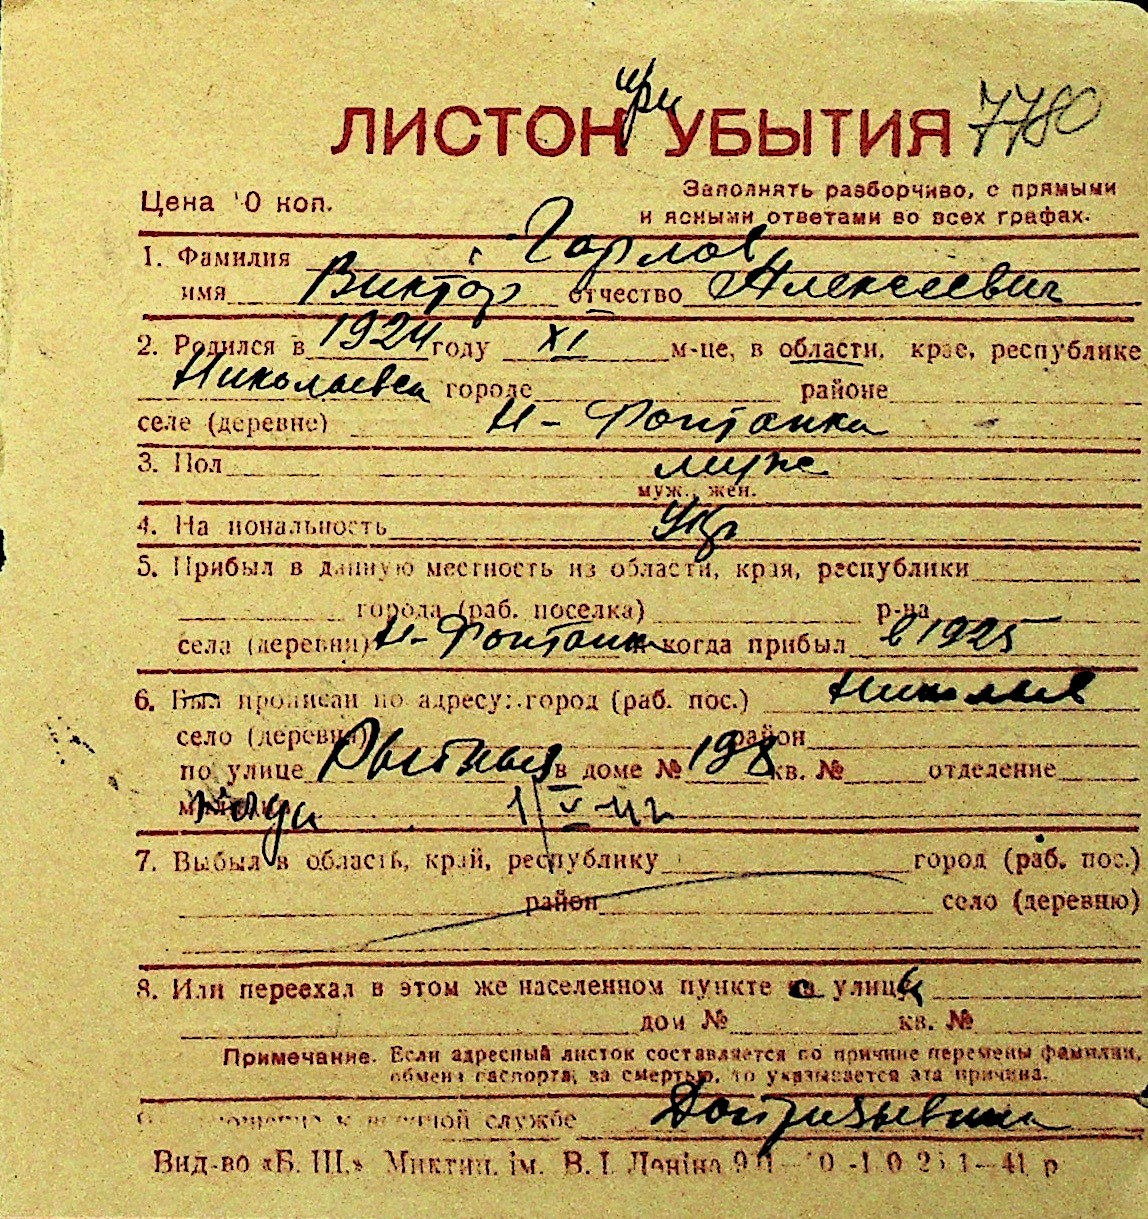 при
ЛИСТОК УБЫТИЯ 7780
Цена 10 коп.
Заполнять разборчиво, с прямыми
и ясными ответами во всех графах.
1. Фамилия Горлов
имя Виктор отчество Алексеевич
2. Родился в 1924 году XI м-це, в области, крае, республике
Николаевск городе районе
селе (деревне) Н-Фонтанка
3. Пол муж
муж., жен.
4. Национальность Укр
5. Прибыл в данную местность из области, края, республики
города (раб. поселка) р-на
села (деревни) Н-Фонтанк когда прибыл в 1925
6. Был прописан по адресу: город (раб. пос.) Николаев
село (деревня) район
по улице Рыбная в доме № 198 кв. № отделение
милиции когда 1 V-42
7. Выбыл в область, край, республику город (раб. пос.)
район село (деревню)
8. Или переехал в этом же населенном пункте с улицы
дом № кв. №
Примечание. Если адресный листок составляется по причине перемены фамилии,
обмена паспорта, за смертью, то указывается эта причина.
военной службе Допризывник
Вид-во «Б. Ш.» Миктип. ім. В. І. Леніна